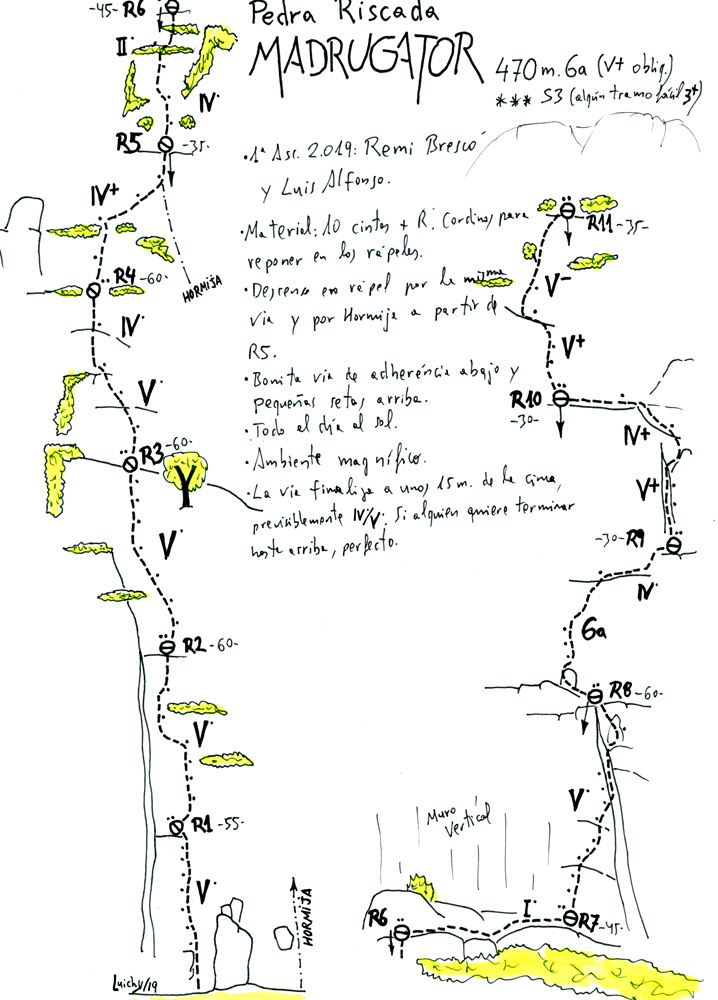 Pedra Riscada
MADRUGATOR
470 m. 6a (V+ oblig.)
*** S3 (algún tramo fácil 3+)
· 1ª Asc. 2.019: Remi Brescó
y Luis Alfonso.
· Material: 10 cintas + R. Cordinos para
reponer en los rápeles.
· Descenso en rápel por la misma
vía y por Hormija a partir de
R5.
· Bonita vía de adherencia abajo y
pequeñas setas arriba.
· Todo el día al sol.
· Ambiente magnífico.
· La vía finaliza a unos 15 m. de la cima,
previsiblemente IV/V. Si alguien quiere terminar
hasta arriba, perfecto.
-45- R6
II
IV
R5 -35-
IV+
HORMIJA
R4 -60-
IV
V
R3 -60-
V
R2 -60-
V
R1 -55-
V
HORMIJA
Luichy/19
R11 -35-
V-
V+
R10
-30-
IV+
V+
-30- R9
IV
6a
R8 -60-
V
Muro
Vertical
R6
I
R7 -45-